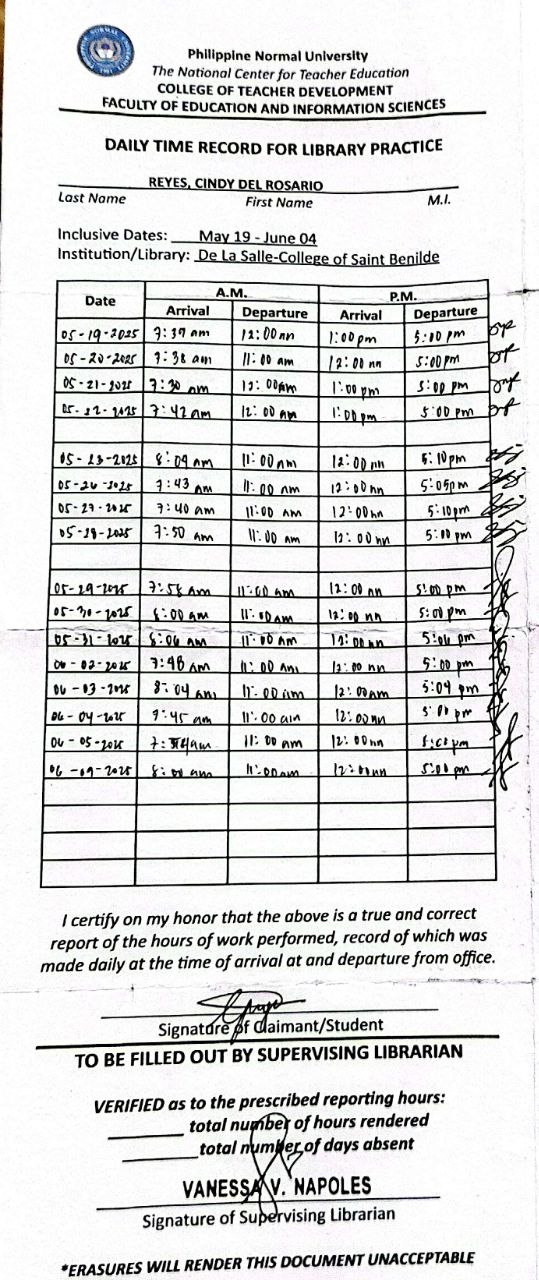 Philippine Normal University
The National Center for Teacher Education
COLLEGE OF TEACHER DEVELOPMENT
FACULTY OF EDUCATION AND INFORMATION SCIENCES
DAILY TIME RECORD FOR LIBRARY PRACTICE
REYES, CINDY DEL ROSARIO
Last Name First Name M.I.
Inclusive Dates: May 19 - June 04
Institution/Library: De La Salle-College of Saint Benilde
Date A.M. P.M.
Arrival Departure Arrival Departure
05-19-2025 7:39 am 12:00nn 1:00pm 5:00 pm
05-20-2025 7:38 am 11:00 am 12:00 nn 5:00pm
05-21-2025 7:30 am 12:00am 1:00pm 5:00 pm
05-22-2025 7:42am 12:00 am 1:00pm 5:00 pm
05-23-2025 8:09 am 11:00am 12:00nn 5:10pm
05-26-2025 7:43 am 11:00 am 12:00nn 5:05pm
05-27-2025 7:40 am 11:00 am 12:00nn 5:10pm
05-28-2025 7:50 am 11:00 am 12:00nn 5:00 pm
05-29-2025 7:58 am 11:00 am 12:00 nn 5:00 pm
05-30-2025 8:00 am 11:00am 12:00 nn 5:00 pm
05-31-2025 8:06 am 11:00am 12:00nn 5:06 pm
06-02-2025 7:48 am 11:00 am 12:00 nn 5:00 pm
06-03-2025 8:04 am 11:00 am 12:00am 5:04 pm
06-04-2025 7:45 am 11:00 am 12:00nn 5:00 pm
06-05-2025 11:00 am 12:00nn
06-09-2025 8:00 am 11:00am 12:00nn 5:00 pm
I certify on my honor that the above is a true and correct
report of the hours of work performed, record of which was
made daily at the time of arrival at and departure from office.
Signature of Claimant/Student
TO BE FILLED OUT BY SUPERVISING LIBRARIAN
VERIFIED as to the prescribed reporting hours:
total number of hours rendered
total number of days absent
VANESSA V. NAPOLES
Signature of Supervising Librarian
*ERASURES WILL RENDER THIS DOCUMENT UNACCEPTABLE